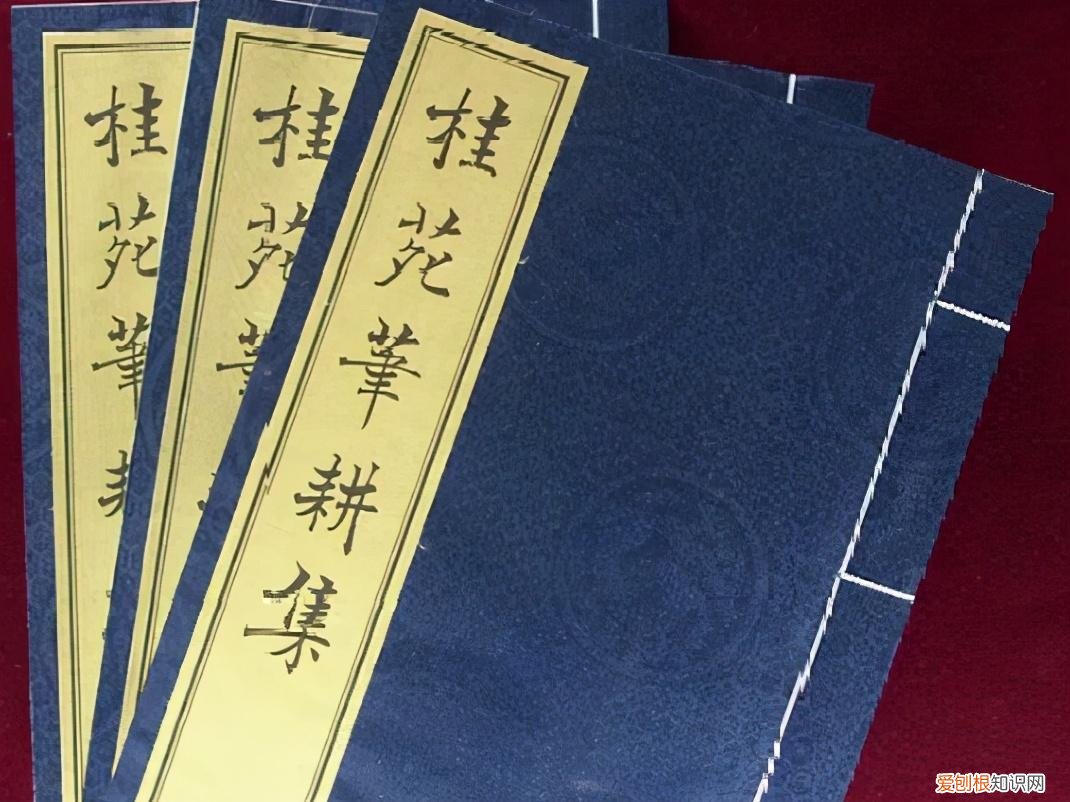 桂苑筆耕集
桂苑筆
桂苑筆
爱刨根知识网